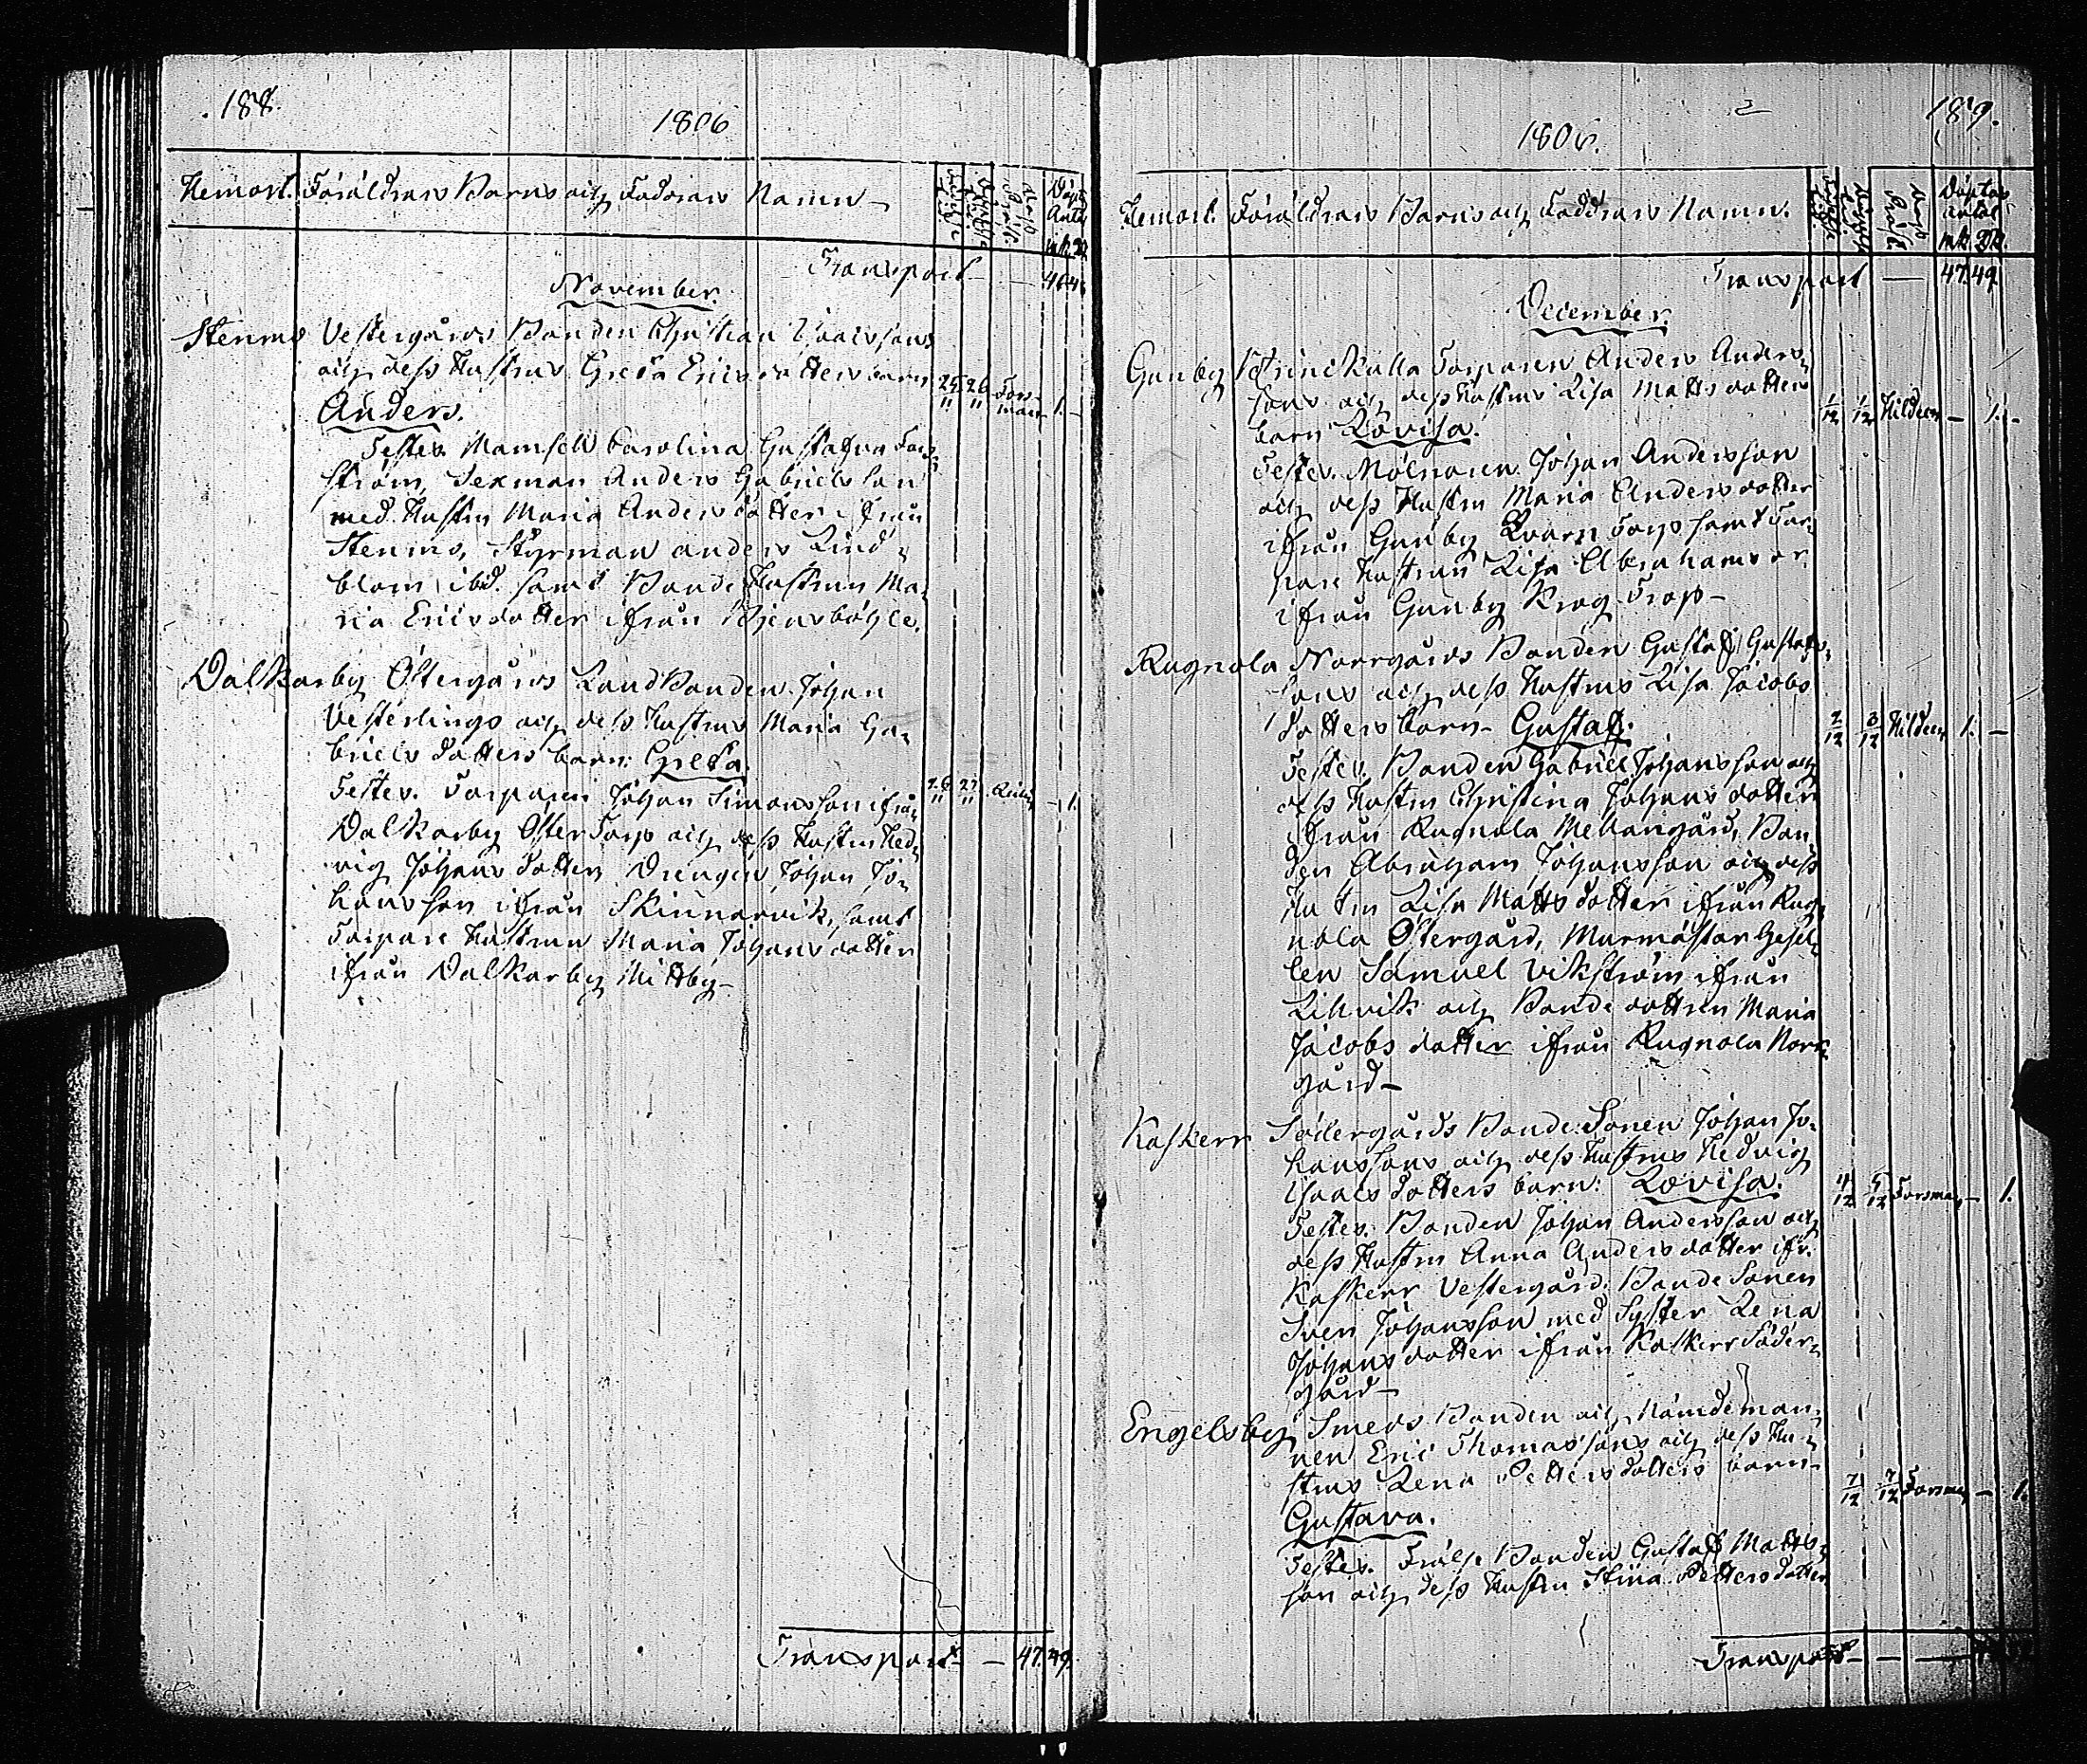 188.
1806
Hemort. Föräldrars Barns och Faddrars Namn
Döpt Antal
mk.
Transport — 46.48
November
Stensnäs Vestergårds Bonden Christian Isacssons
och dess Hustrus Greta Ericsdotters barn
25/11 26/11 Forsman 1. —
Anders.
Testes. Mamsell Carolina Gustafva Fors-
ström, Sexman Anders Gabrielsson
med Hustru Maria Andersdotter ifrån
Styrman Anders Lind-
blom ibd. samt Bonde Hustrun Ma-
ria Ericsdotter ifrån Björsböhle.
Dalkarby Östergårds Landbonden Johan
Vesterlings och dess Hustrus Maria Ga-
briels dotters barn: Greta.
26/11 27/11 — 1.
Testes. Torparen Johan Simonsson ifrån
Dalkarby Öster Torp och dess Hustru Hed-
vig Johans dotter, Drengen Johan Jo-
hansson ifrån Skinnarvik, samt
Torpare Hustrun Maria Johansdotter
ifrån Dalkarby Mittby —
Transport — 47.49.
189.
1806.
Hemort. Föräldrars Barns och Faddrars Namn.
Döptas antal
mk. qk.
Transport — 47.49.
December
Gunby Torparen Anders Anders-
sons och dess Hustrus Lisa Matts dotters
barn Lovisa.
1/12 1/12 Hildeen — 1. —
Testes. Mölnaren Johan Andersson
och dess Hustru Maria Andersdotter
ifrån Gunby Kvarn Torp samt Tor-
pare Hustrun Lisa Abrahams dr
ifrån Gunby Krog Trop —
Rugnola Norrgårds Bonden Gustaf Gustafs-
sons och dess Hustrus Lisa Jacobs
dotters barn — Gustaf.
2/12 3/12 Hildeen 1. —
Testes. Bonden Gabriel Johansson och
dess Hustru Christina Johans dotter
ifrån Rugnola Mellangård, Bon-
den Abraham Johansson och dess
Hustru Lisa Matts dotter ifrån Rug-
nola Östergård, Murmästar Gesel-
len Samuel Vikström ifrån
Lillvik och Bonde dottren Maria
Jacobs dotter ifrån Rugnola Norr-
gård —
Kaskerr Södergårds Bonde Sonen Johan Jo-
hanssons och dess Hustrus Hedvig
Isaacs dotters barn: Lovisa.
4/12 5/12 Forsman — 1.
Testes. Bonden Johan Andersson och
dess Hustru Anna Andersdotter ifr.
Kaskerr Vestergård, Bonde Sonen
Sven Johansson med Syster Lena
Johansdotter ifrån Kaskerr Söder-
gård —
Engelsby Smeds Bonden och Nämdeman-
nen Eric Thomassons och dess Hu-
strus Lena Petters dotters barn
7/12 7/12 Forsman — 1.
Gustava.
Testes. Frälse Bonden Gustaf Matts-
son och dess Hustru Stina Petters dotter
Transport —